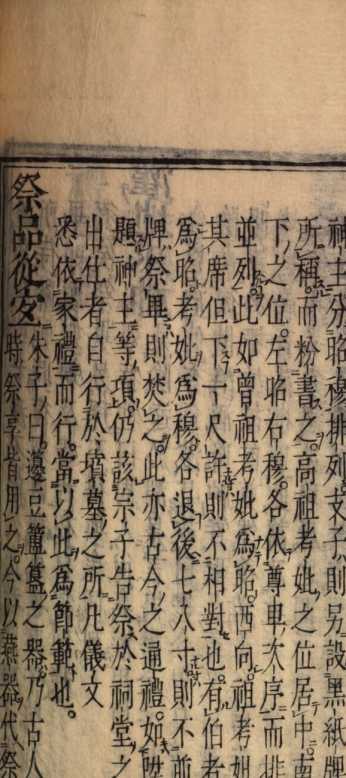 神主分昭穆排列支子則另設黒紙牌
所稱而粉書之高祖考妣之位居中南
下之位左昭右穆各依尊卑次序而排
並列此如曾祖考妣爲昭西向祖考妣
其席但下一尺許則不相對也有伯者
爲昭考妣爲穆各退後七八寸則不並
牌祭畢則焚之此亦古今之通禮如
題神主等項仍該宗子告祭於祠堂之
出仕者自行於墳墓之所凡儀文
悉依家禮而行當以此爲節範也
祭品從宜
朱子曰籩豆簠簋之器乃古人
時祭享皆用之今以燕器代祭